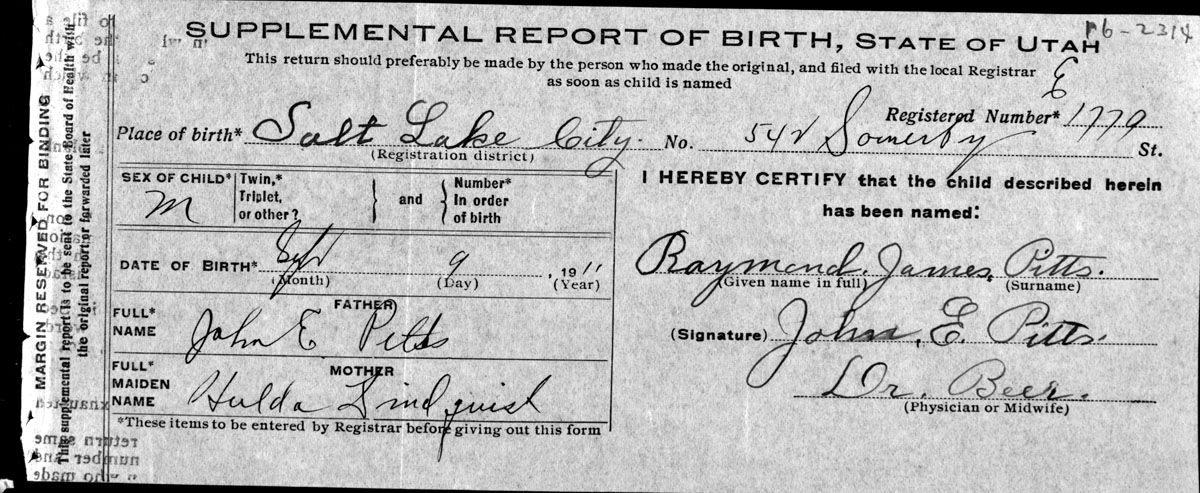 p6-2314
SUPPLEMENTAL REPORT OF BIRTH, STATE OF UTAH
This return should preferably be made by the person who made the original, and filed with the local Registrar
as soon as child is named
E
Registered Number* 1779
Place of birth* Salt Lake City. No. 542 Somerby St.
(Registration district)
SEX OF CHILD* M
Twin,* Triplet, or other? } and { Number* In order of birth
DATE OF BIRTH* Sept 9, 1911
(Month) (Day) (Year)
FATHER
FULL* NAME John E Pitts
MOTHER
FULL* MAIDEN NAME Hulda Lindquist
*These items to be entered by Registrar before giving out this form
I HEREBY CERTIFY that the child described herein
has been named:
Raymond James Pitts.
(Given name in full) (Surname)
(Signature) John E. Pitts.
Dr. Beer.
(Physician or Midwife)
MARGIN RESERVED FOR BINDING
This supplemental report is to be sent to the State Board of Health with
the original report or forwarded later